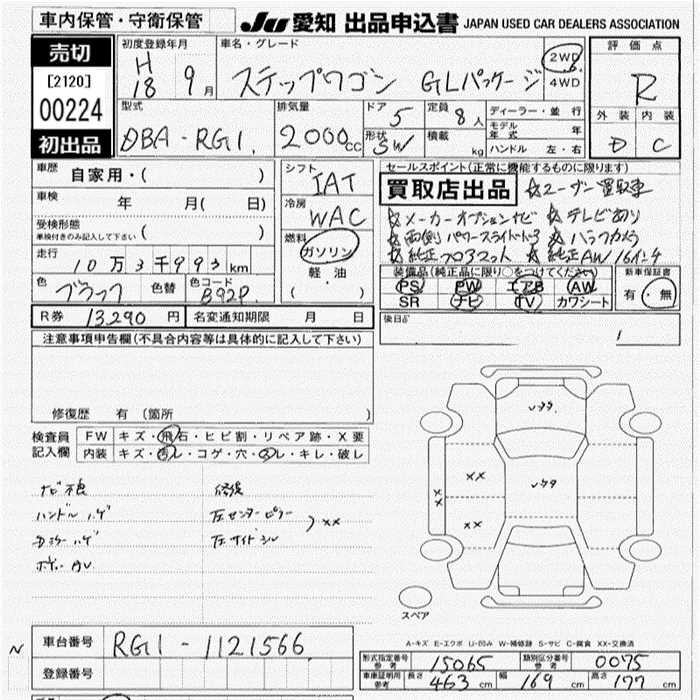 車内保管・守衛保管
JU 愛知 出品申込書 JAPAN USED CAR DEALERS ASSOCIATION
売切
[2120]
00224
初出品
初度登録年月
H
18 9月
車名・グレード
ステップワゴン GLパッケージ
2WD
4WD
評価点
R
外装 内装
D C
型式
DBA-RG1.
排気量
2000cc
ドア
5
形状
SW
定員
8人
積載
kg
ディーラー・並行
モデル年式 年
ハンドル 左・右
車歴
自家用・( )
車検
年 月( 日)
受検形態
車検付きのみ記入して下さい ( )
走行
10万3千993km
色
ブラック
色替
色コード
B92P.
シフト
IAT
冷房
WAC
燃料
ガソリン
軽油
( )
セールスポイント(正常に機能するものに限ります)
買取店出品 ☆ユーザー買取車
☆メーカーオプションナビ ☆テレビあり
☆両側パワースライドドア ☆バックカメラ
☆純正フロアマット ☆純正AW16インチ
装備品(純正品に限り○をつけてください)
PS PW エアB AW
SR ナビ TV カワシート
新車保証書
有・無
R券 13,290円
名変通知期限 月 日
後日
注意事項申告欄(不具合内容等は具体的に記入して下さい)
修復歴 有(箇所 )
検査員
記入欄
FW キズ・飛石・ヒビ割・リペア跡・X要
内装 キズ・汚レ・コゲ・穴・スレ・キレ・破レ
ナビ不良
ハンドルハゲ
修復
左センターピラー
左サイドシル
××
××
××
××
スペア
A-キズ E-エクボ U-凹み W-補修跡 S-サビ C-腐食 XX-交換済
車台番号 RG1-1121566
登録番号
N
形式指定番号参考 15065
類別区分番号参考 0075
車庫証明用参考 長さ 463cm 幅 169cm 高さ 177cm